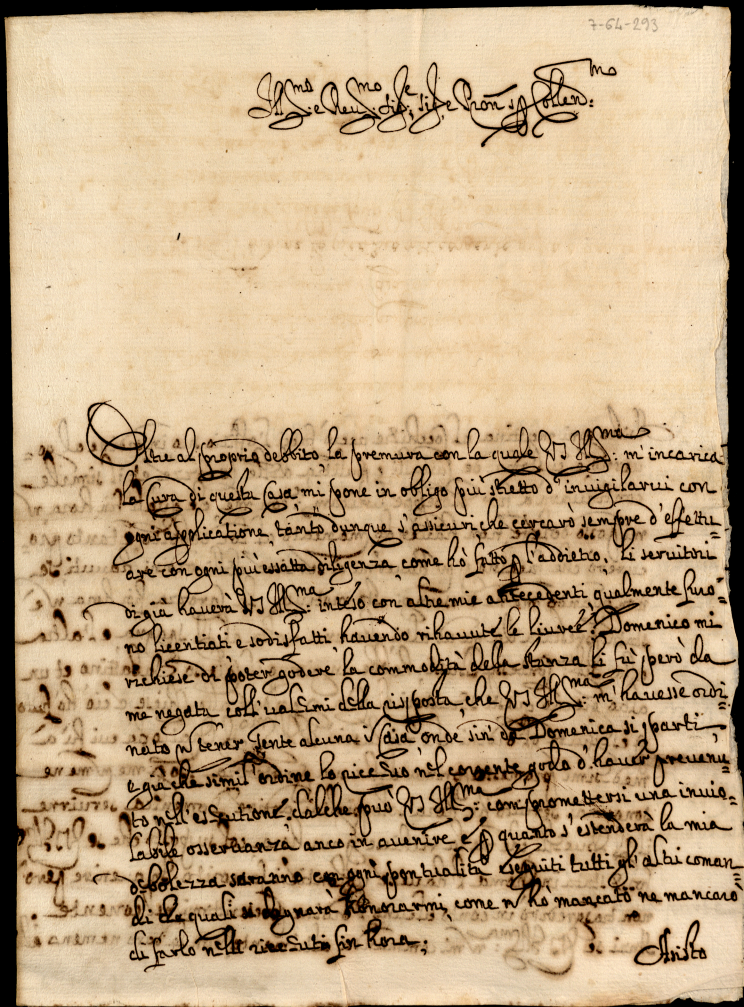 7-64-293
Ill:mo e Reu:mo Sig:e Sig:e Pron Col:mo
Oltre al proprio debbito la premura con la quale VS Ill:ma m'incarica
la Cura di questa Casa mi pone in obligo più stretto d'inuigilarui con
ogni applicatione, tanto dunque s'assicuri che cercarò sempre d'effettu=
are con ogni più essatta diligenza come hò fatto p l'addietro; li seruitori
di già hauerà VS Ill:ma inteso con altre mie antecedenti qualmente furo=
no licentiati e sodisfatti hauendo rihauute le liuree: Domenico mi
richiese di poter godere la commodità della stanza li fù però da
me negata coll'ualermi della risposta che VS Ill:ma m'hauesse ordi=
nato n tener gente alcuna i Casa onde sin da Domenica si partì
e già che simil'ordine lo riceuo nel corrente godo d'hauer preuenu=
to nell'essecutione, dalche può VS Ill:ma compromettersi una inuio=
labile osseruanza anco in auenire, e p quanto s'estenderà la mia
debolezza saranno con ogni pontualità eseguiti tutti gl'altri coman=
di de quali si degnarà honorarmi, come n hò mancato ne mancarò
di farlo nelli riceuuti fin hora;
Aristo